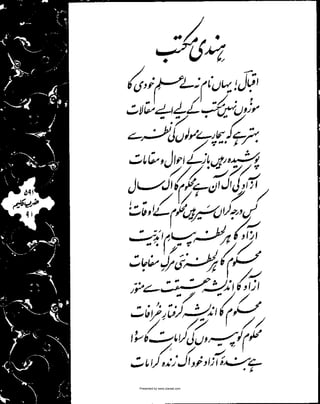 ہندی مکتب
اقبال! یہاں نام نہ لے علم خودی کا
موزوں نہیں مکتب کے لیے ایسے مقالات
بہتر ہے کہ بیچارے ممولوں کی نظر سے
پوشیدہ رہیں باز کے احوال و مقامات
آزاد کی اک آن ہے محکوم کا اک سال
کس درجہ گراں سیر ہیں محکوم کے اوقات
آزاد کا ہر لحظہ پیام ابدیت
محکوم کا ہر لحظہ نئی مرگ مفاجات
آزاد کا اندیشہ حقیقت سے منور
محکوم کا اندیشہ گرفتار خرافات
محکوم کو پیروں کی کرامات کا سودا
ہے بندۂ آزاد خود اک زندہ کرامات
۵۹۱
ضرب کلیم
۹۱
Presented by www.ziaraat.com